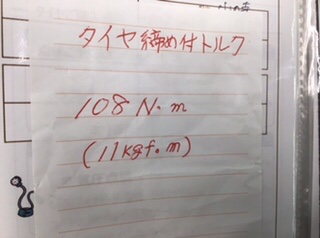 タイヤ締め付トルク
108 N・m
(11kgf・m)